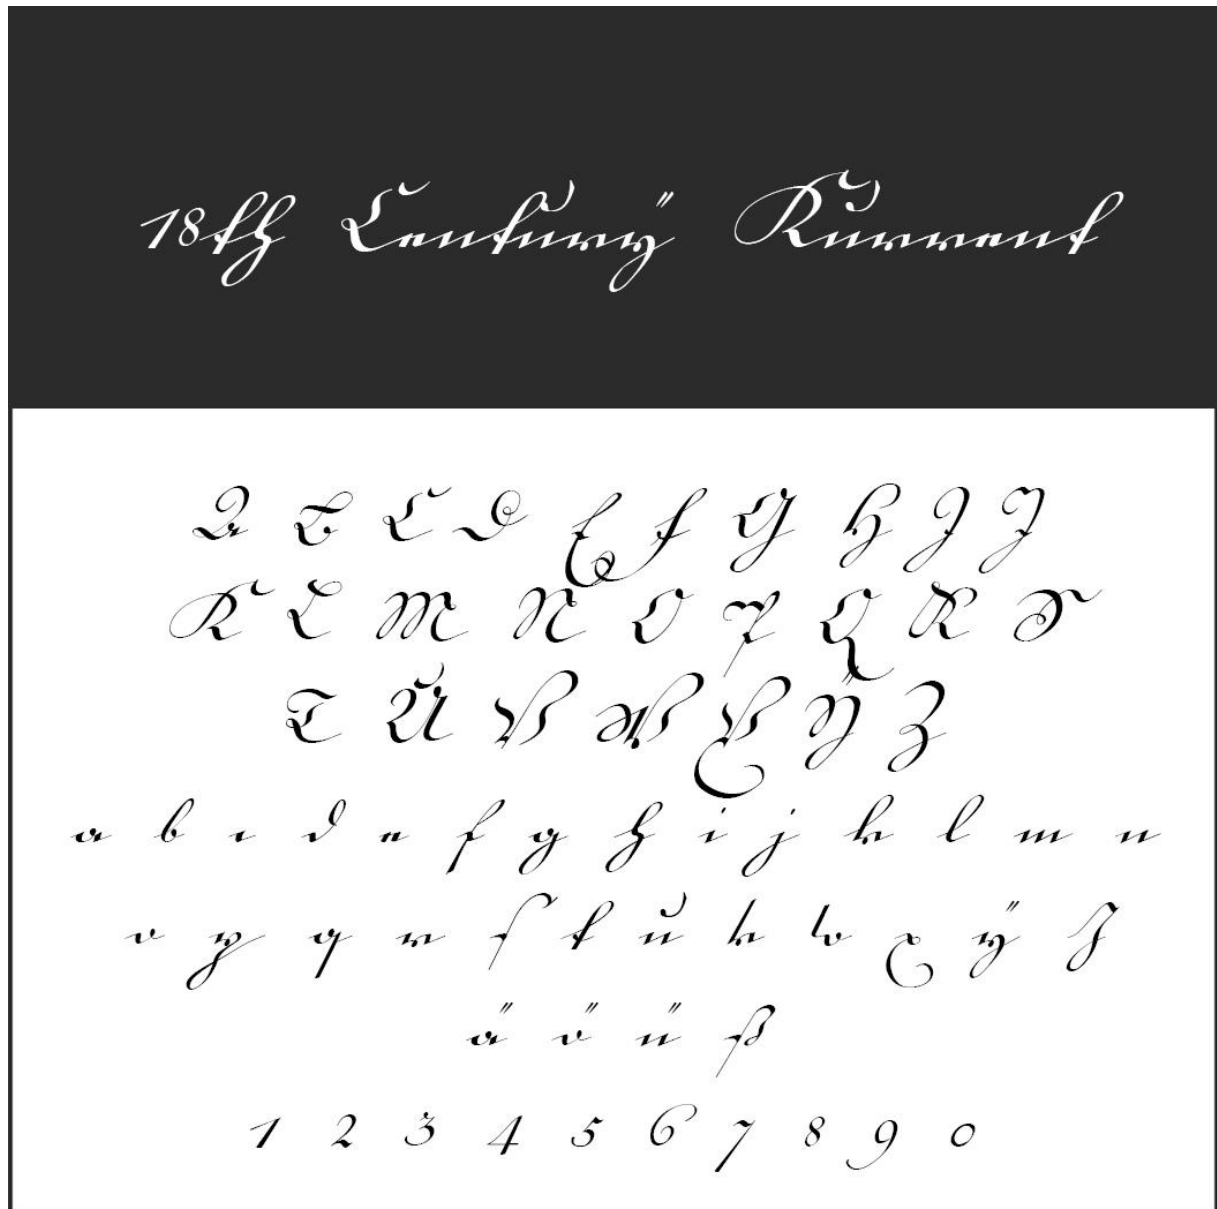 18th Century Kurrent
A B C D E F G H I J
K L M N O P Q R S
T U V W X Y Z
a b c d e f g h i j k l m n
o p q r s t u v w x y z
ä ö ü ß
1 2 3 4 5 6 7 8 9 0